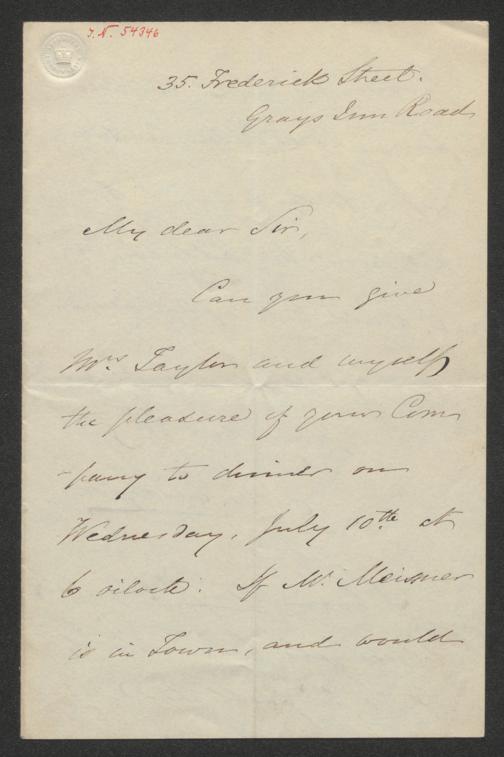 J. N. 54346
35. Frederick Street.
Grays Inn Road
My dear Sir,
Can you give
Mrs. Taylor and myself
the pleasure of your Com
-pany to dinner on
Wednesday, July 10th. at
6 o'clock. If Mr. Meissner
is in Town, and would